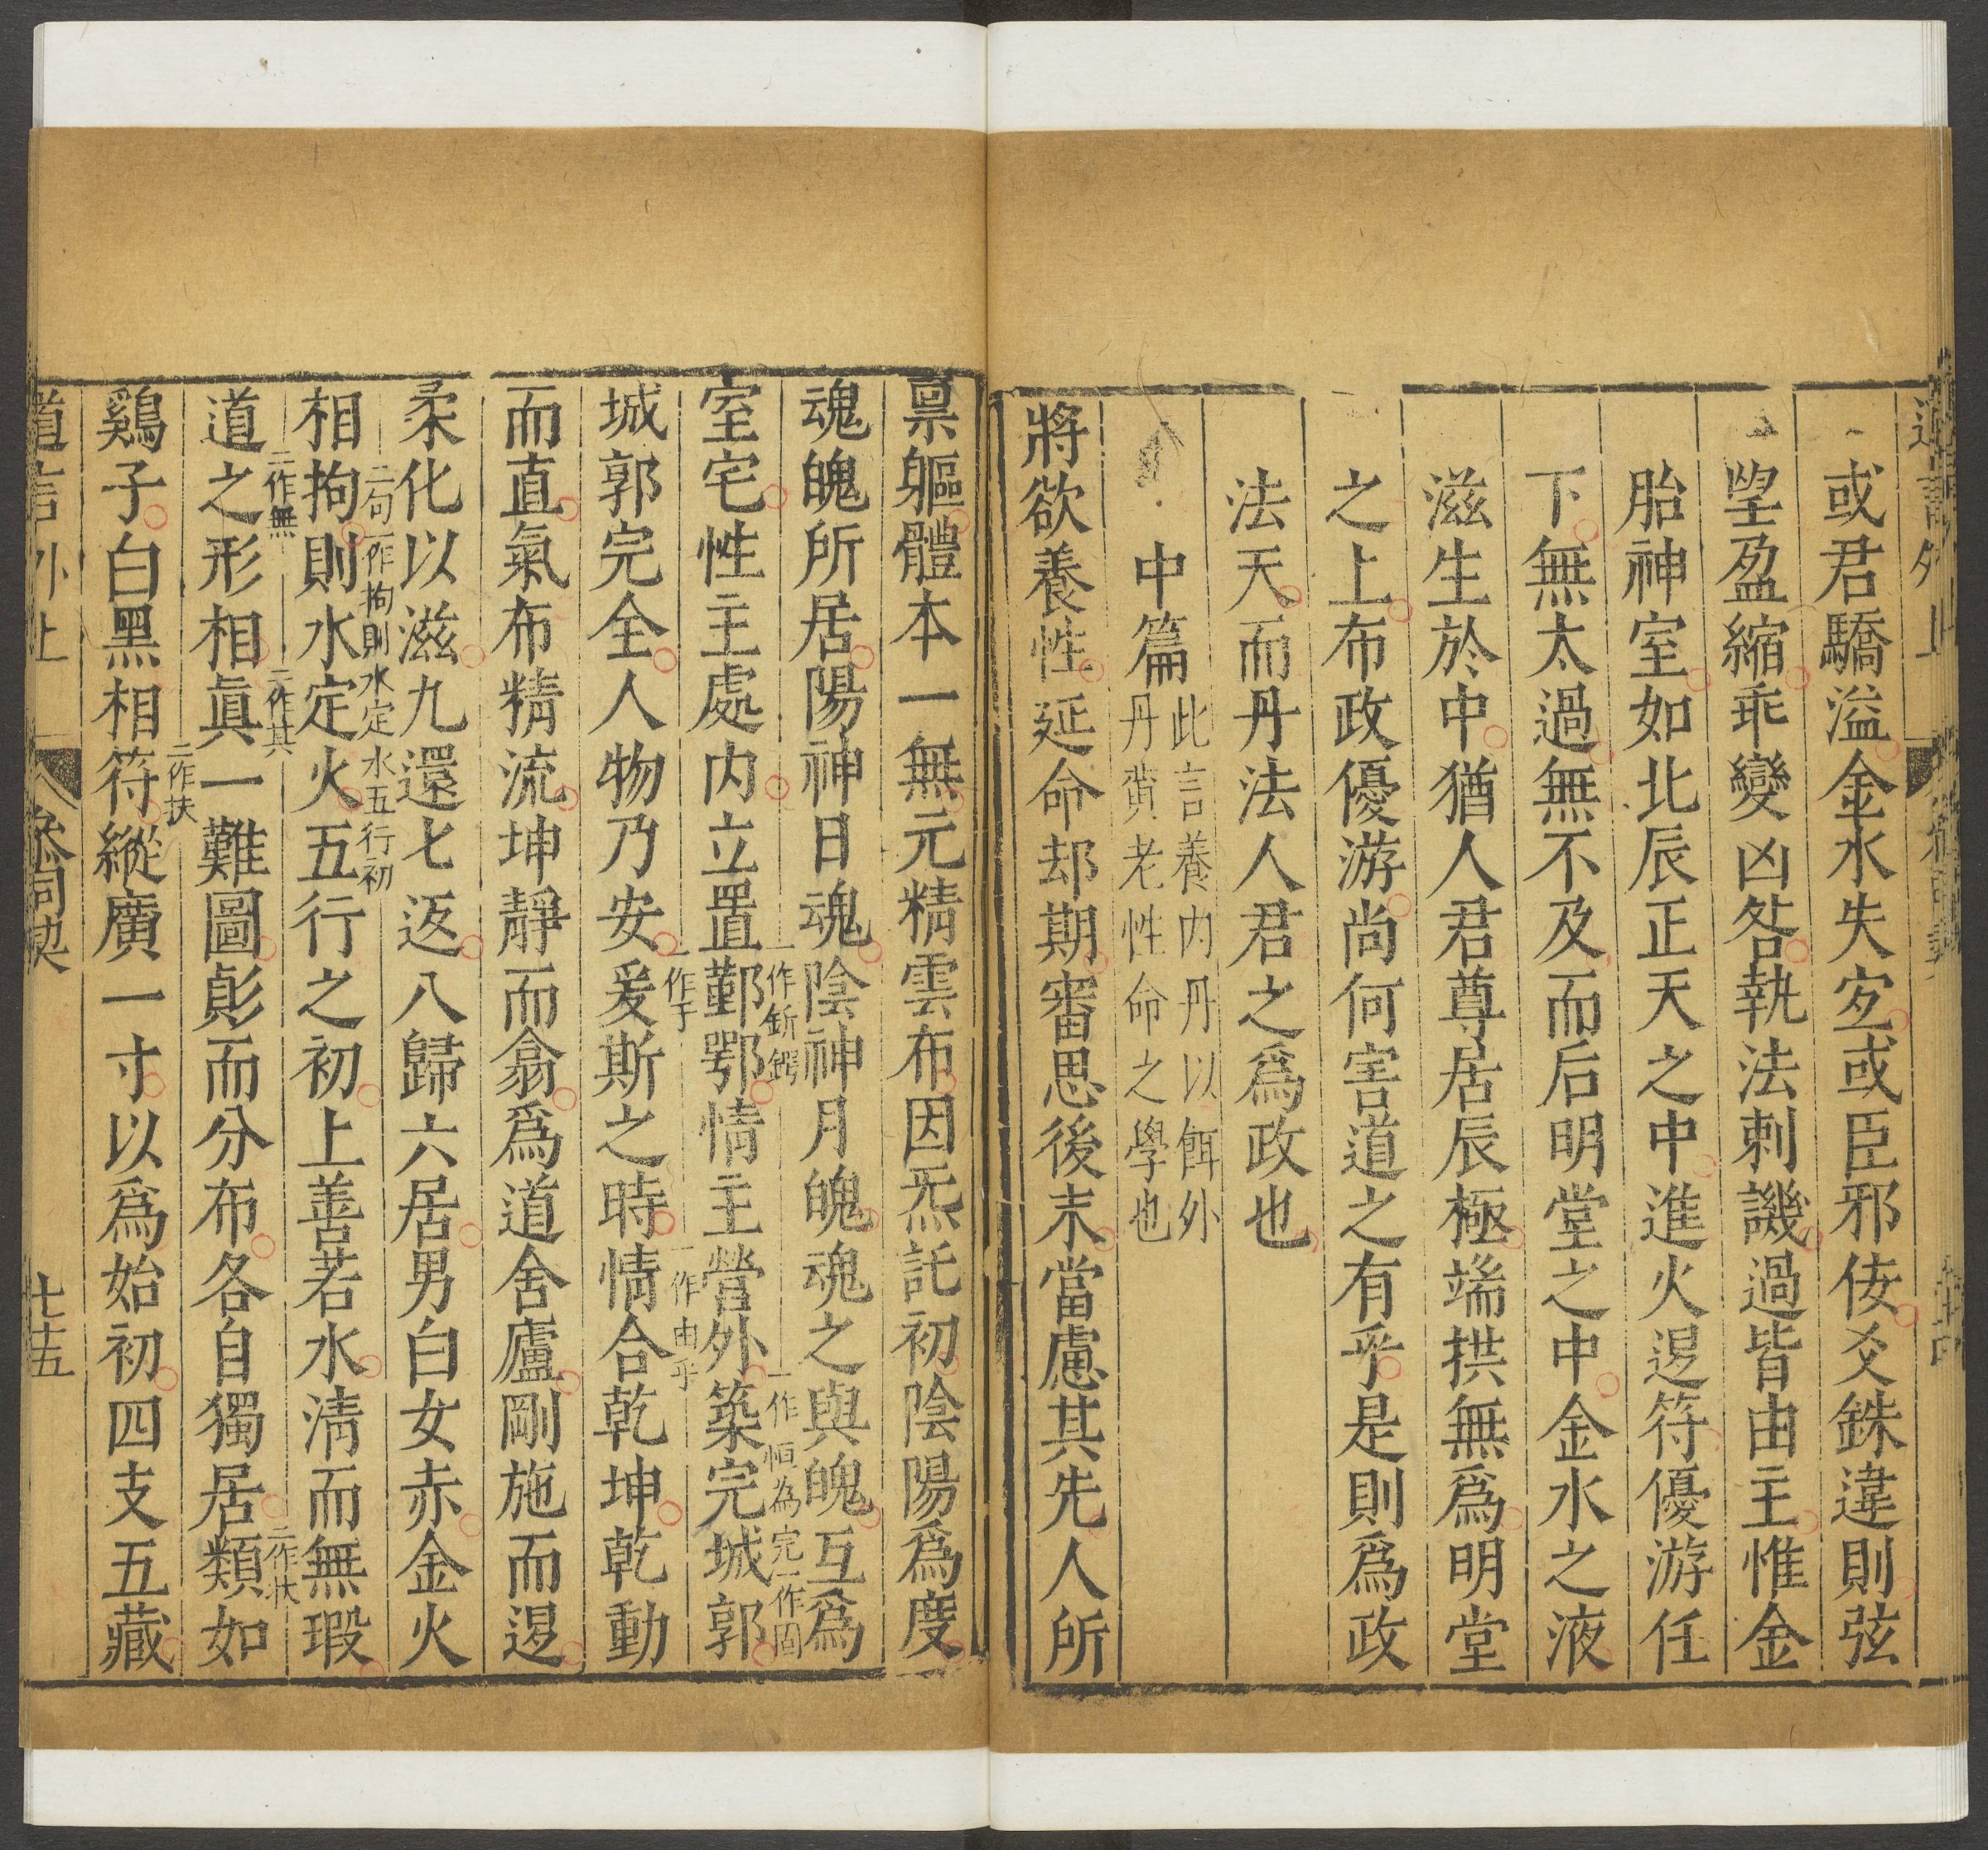 或君驕溢金水失㝎或臣邪佞爻銖違則弦
望盈縮乖變凶咎執法刺譏過皆由主惟金
胎神室如北辰正天之中進火退符優游任
下無太過無不及而后明堂之中金水之液
滋生於中猶人君尊居辰極端拱無爲明堂
之上布政優游尚何害道之有乎是則爲政
法天而丹法人君之爲政也
中篇
此言養内丹以餌外
丹黄老性命之學也
將欲養性延命却期審思後末當慮其先人所
禀軀體本一無元精雲布因炁託初陰陽爲度
魂魄所居陽神日魂陰神月魄魂之與魄互爲
室宅性主處内立置鄞鄂情主營外築完城郭
一作釿鍔
一作恒為完一作固
城郭完全人物乃安爰斯之時情合乾坤乾動
一作于
一作由乎
而直氣布精流坤靜而翕爲道舍廬剛施而退
柔化以滋九還七返八歸六居男白女赤金火
相拘則水定火五行之初上善若水清而無瑕
二句一作拘則水定水五行初
道之形相眞一難圖𢒰而分布各自獨居類如
一作無
一作其
一作扶
鷄子白黑相符縱廣一寸以爲始初四支五藏
一作扶
道言外 上
參同契
七十五